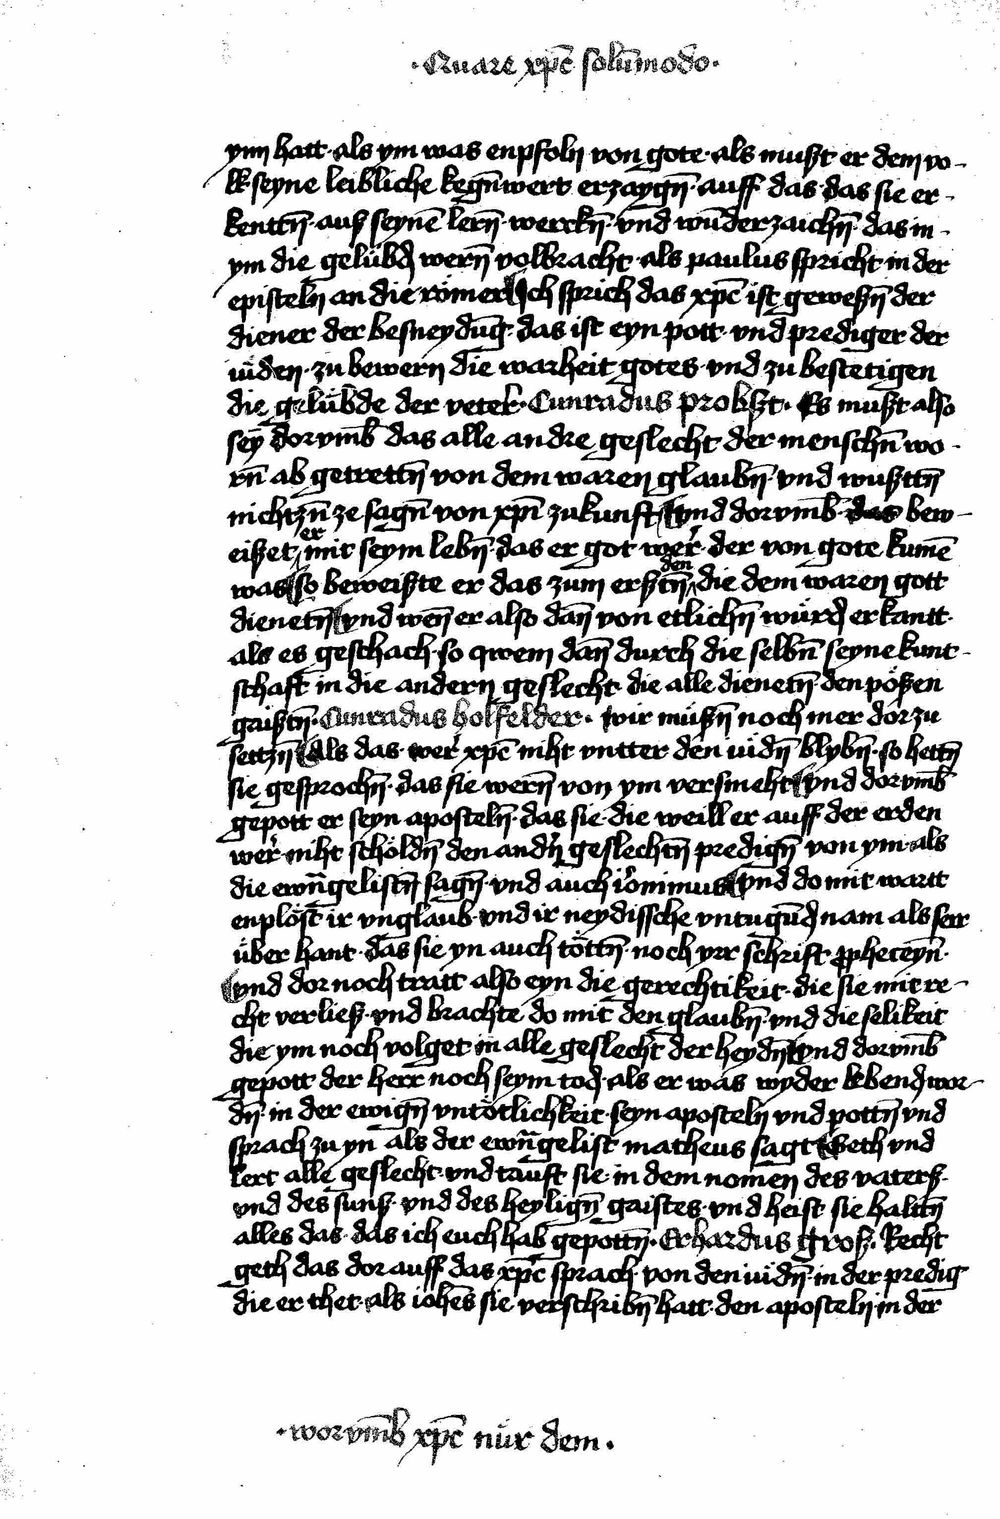 ·Quare xp̄c solūmodo·
ym hatt·als ym was enpfoln von gote·als mußt er dem vo-
lk·seyne leibliche kegn̄wert erzaygn̄·auff das·das sie er-
kenttn̄·auß seynē lern̄·werckn̄·vnd wūderzaichn̄·das in-
ym die gelübd wern̄ volbracht·als paulus spricht in der
episteln an die römer Ich sprich das xp̄c ist geweßn̄ der
diener der besneydūg·das ist eyn pott·vnd prediger der
iüden·zu bewern die warheit gotes·vnd zu bestetigen
die gelübde der veter·Cunradus probst·Es mußt also
sey dorvm̄b das alle andre geslecht der menschn̄ wo-
rn̄ ab getrettn̄ von dem waren glaubn̄·vnd wußttn̄
nichtzn̄ ze sagn̄ von xpī zukunfft Vnd dorvm̄b das bew-
eißet er mit seym lebn̄·das er got wer·der von gote kumē
was so beweißte er das zum erstn̄ den die dem waren gott
dienetn̄ vnd wen̄ er also dan̄ von etlichn̄ würd erkantt·
als es geschach·so qwem dan̄ durch die selbn̄ seyne kunt-
schaft in die andern geslecht·die alle dienetn̄·den pößen
gaistn̄·Cunradus holfelder·wir müßn̄ noch mer dorzu
settzn̄ Als das·wer xp̄c niht vntter den iüdn̄ blybn̄·so hettn̄
sie gesprochn̄·das sie wern̄ von ym versmeht vnd dorvm̄b
gepott er seyn aposteln̄·das sie·die weill er auff der erden
wer·niht schöldn̄ den andn̄ geslechtn̄ predign̄ von ym·als
die ewn̄gelistn̄ sagn̄·vnd auch iēronimus Vnd do mit wartt
enplöst ir vnglaub·vnd ir neydissche vntugūd nam als serr
über hant·das sie yn auch töttn̄·noch yrr schrift ꝓpheceyn̄·
Vnd dor noch tratt also eyn die gerechtikeit·die sie mit re-
cht verließ·vnd brachte do mit den glaubn̄·vnd die selikeit
die ym noch volget in alle geslecht der heydn̄ Vnd dorvm̄b
gepott der herr noch seym tod·als er was wyder lebend wor-
dn̄·in der ewign̄ vntötlichkeit·seyn aposteln vnd pottn̄ vnd
sprach zu yn als der ewn̄gelist matheus sagt Geth vnd
lert alle geslecht·vnd tauft sie·in dem nomen des vaterß·
vnd des sunß·vnd des heylign̄ gaistes·vnd heist sie haltn̄
alles das·das ich euch hab gepottn̄·Erhardus groß·Recht
geth das dor auff das xp̄c sprach·von den iüdn̄·in der predig
die er thet·als iohēs sie verschribn̄ hatt·den aposteln in der
·worvm̄b xp̄c nür dem·